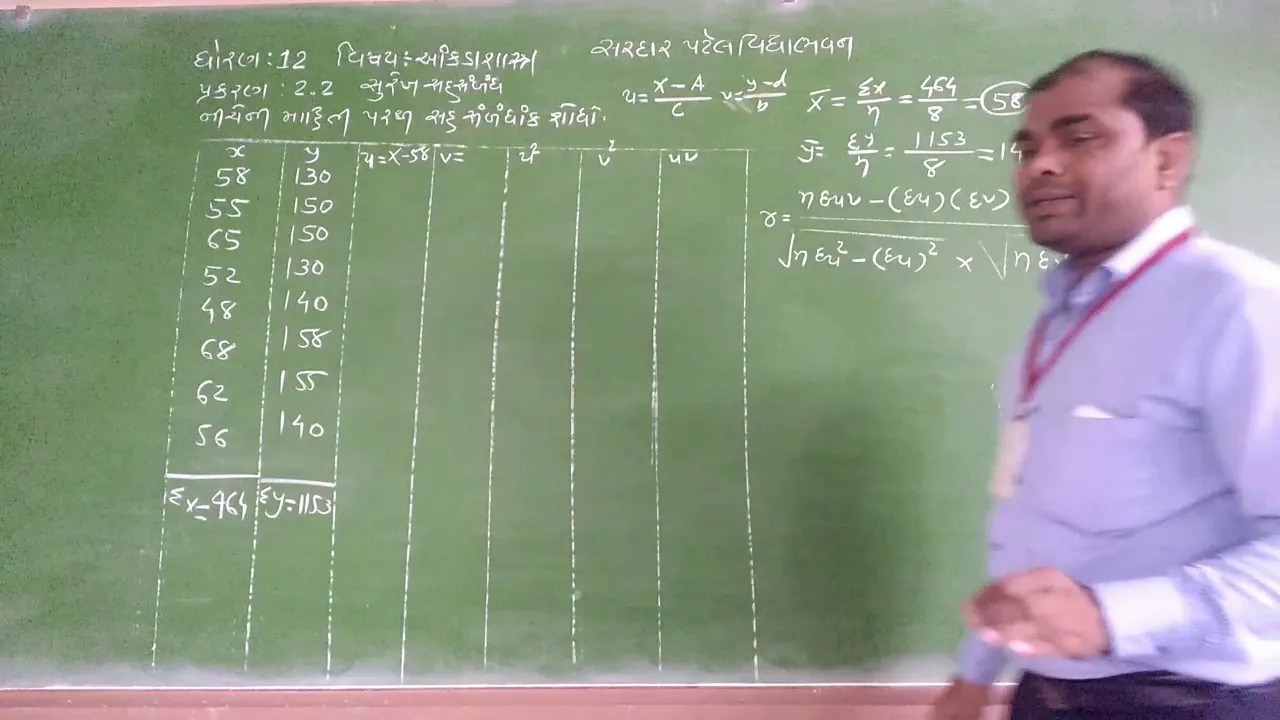 ધોરણ : 12 વિષય :- આંકડાશાસ્ત્ર સરદાર પટેલ વિદ્યાભવન
પ્રકરણ : 2.2 સુરેખ સહસંબંધ
નીચેની માહિતી પરથી સહસંબંધાંક શોધો.
u = x – A / c v = y – d / b
x̄ = Σx / n = 464 / 8 = 58
ȳ = Σy / n = 1153 / 8 = 14
r = nΣuv – (Σu)(Σv) / √nΣu² – (Σu)² × √nΣv
x y u = x – 58 v = u² v² uv
58 130
55 150
65 150
52 130
48 140
68 158
62 155
56 140
Σx = 464 Σy = 1153